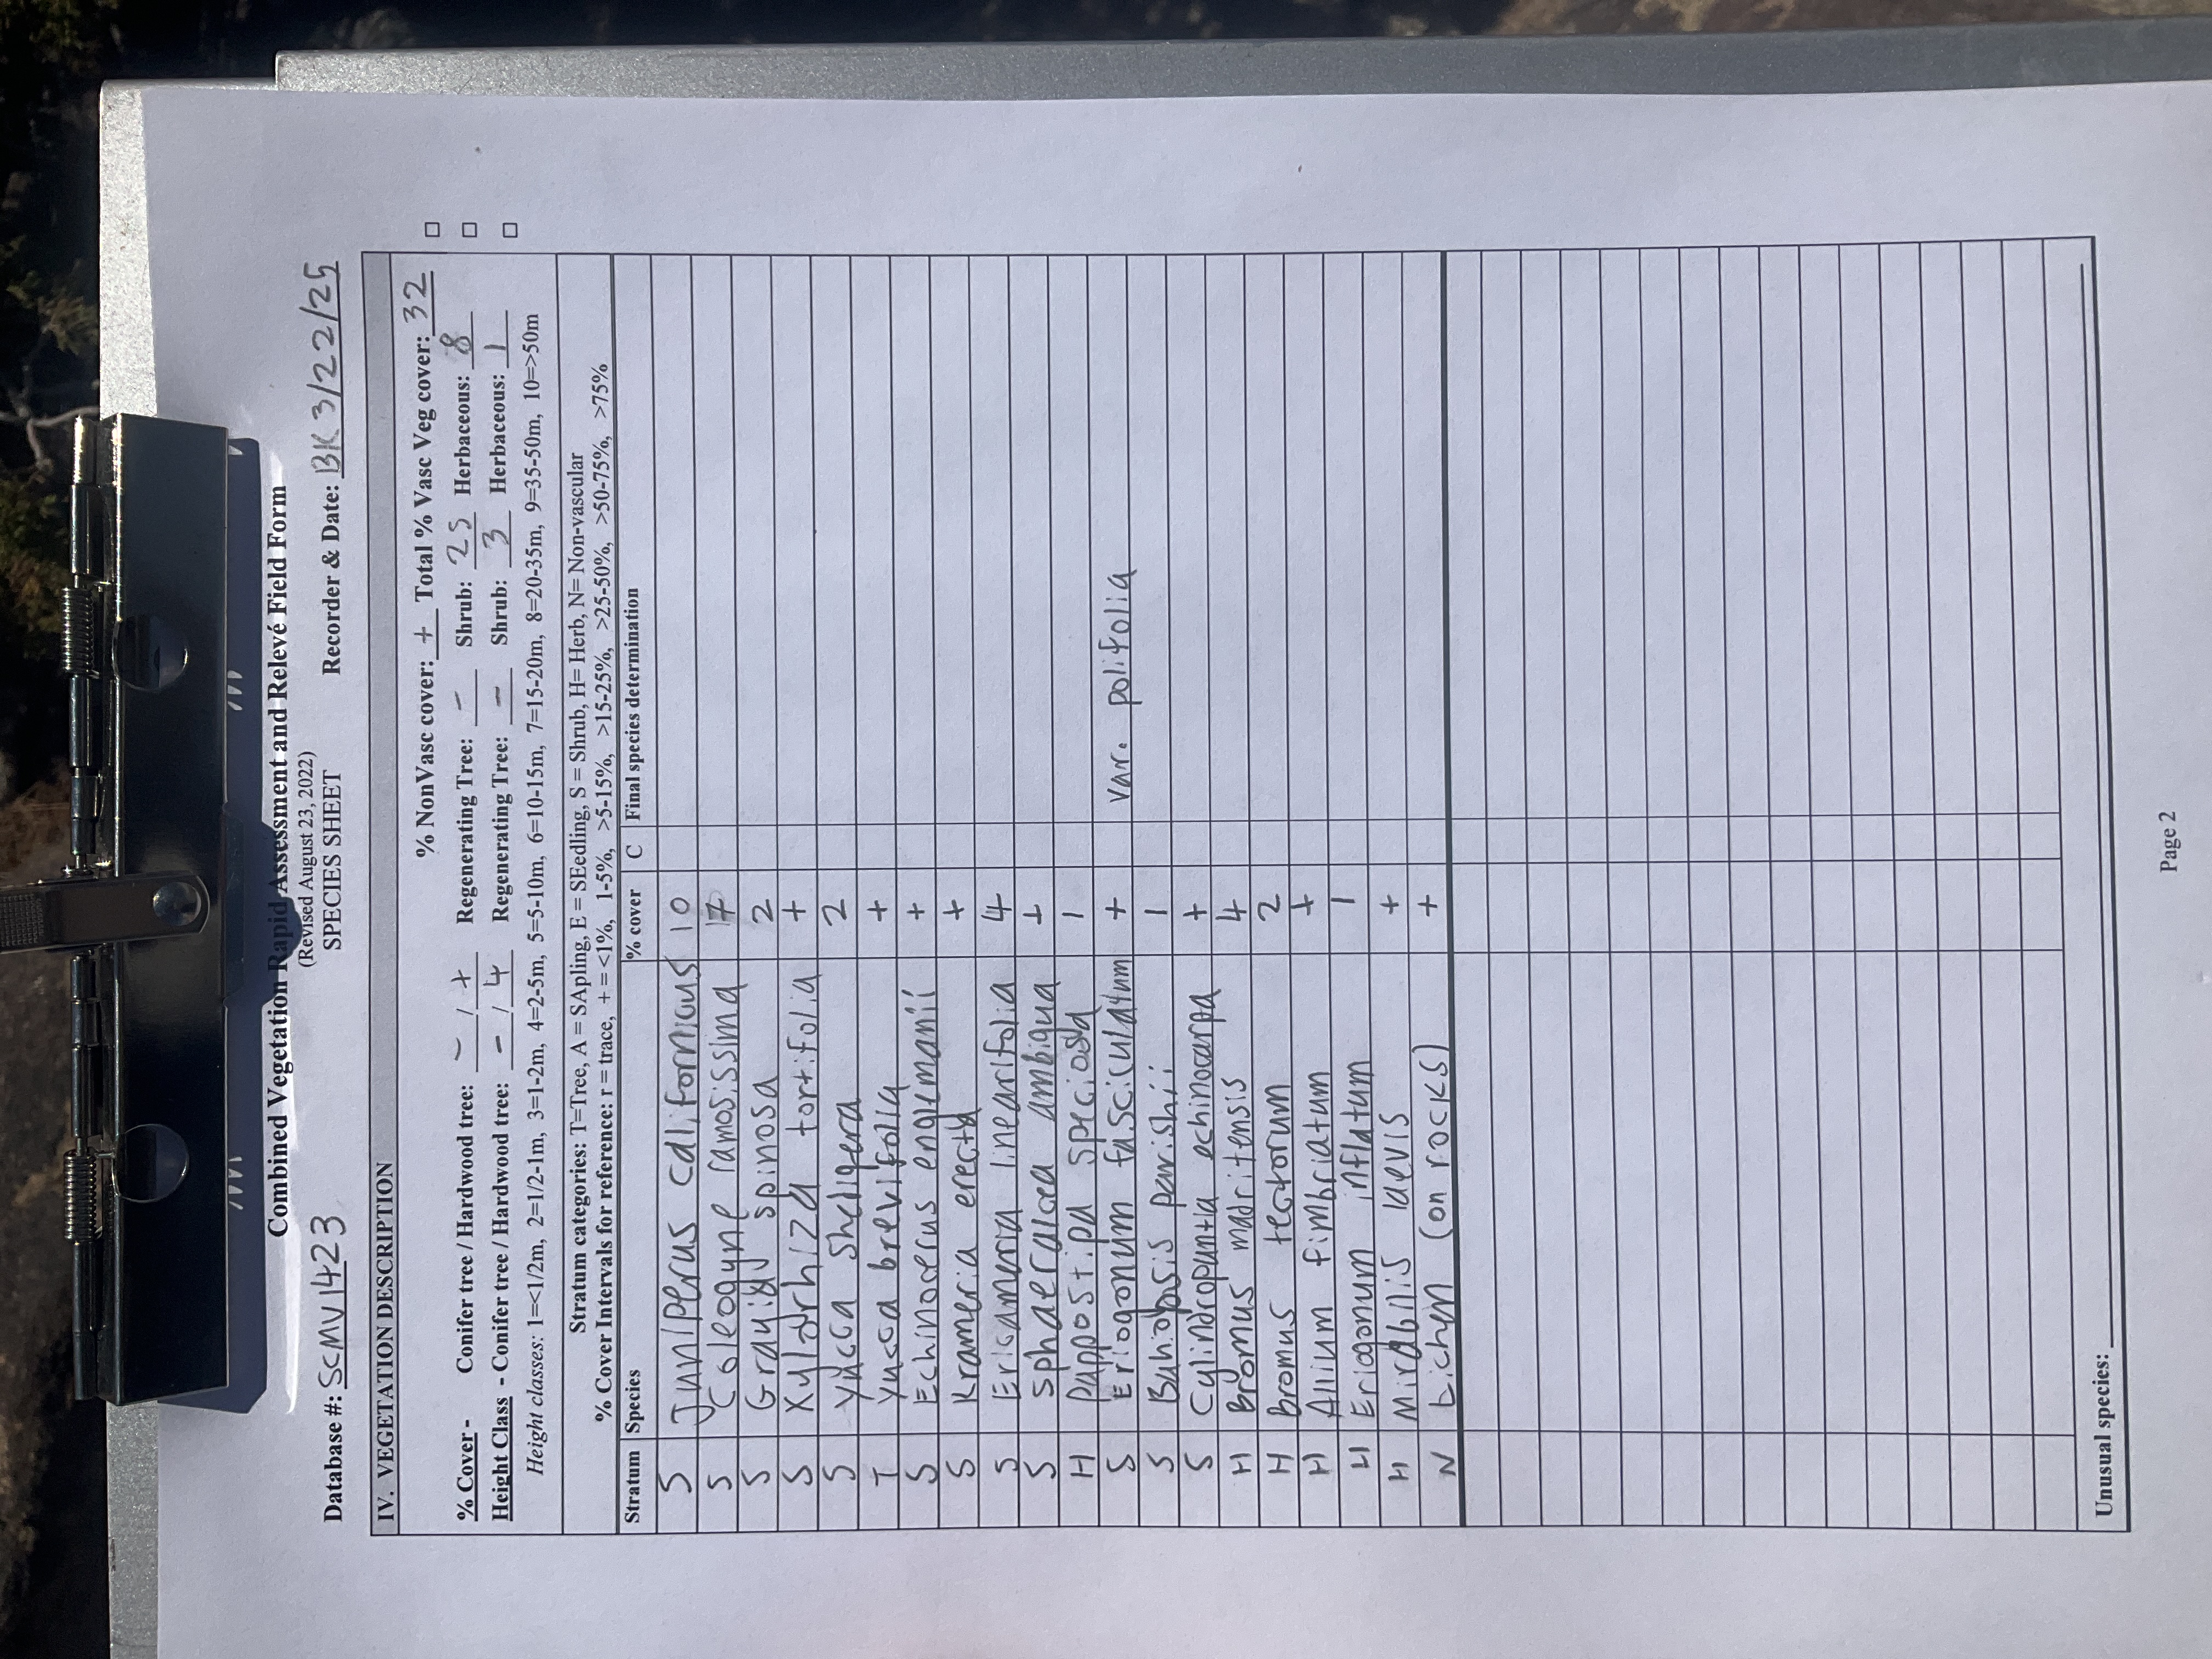 Combined Vegetation Rapid Assessment and Relevé Field Form
(Revised August 23, 2022)
SPECIES SHEET
Database #: SCMV1423 Recorder & Date: BK 3/22/25
IV. VEGETATION DESCRIPTION
% NonVasc cover: + Total % Vasc Veg cover: 32 □
% Cover - Conifer tree / Hardwood tree: - / + Regenerating Tree: - Shrub: 25 Herbaceous: 8 □
Height Class - Conifer tree / Hardwood tree: - / 4 Regenerating Tree: - Shrub: 3 Herbaceous: 1 □
Height classes: 1=<1/2m, 2=1/2-1m, 3=1-2m, 4=2-5m, 5=5-10m, 6=10-15m, 7=15-20m, 8=20-35m, 9=35-50m, 10=>50m
Stratum categories: T=Tree, A = SApling, E = SEedling, S = Shrub, H= Herb, N= Non-vascular
% Cover Intervals for reference: r = trace, + = <1%, 1-5%, >5-15%, >15-25%, >25-50%, >50-75%, >75%
Stratum Species % cover C Final species determination
S Juniperus californicus 10
S Coleogyne ramosissima 17
S Grayia spinosa 2
S Xylorhiza tortifolia +
S Yucca Shidigera 2
T Yucca brevifolia +
S Echinocerus englemanii +
S Krameria erecta +
S Ericameria linearifolia 4
S Sphaeralcea ambigua +
H Pappostipa speciosa 1
S Eriogonum fasciculatum + var. polifolia
S Bahiopsis parishii 1
S Cylindropuntia echinocarpa +
H Bromus madritensis 4
H bromus tectorum 2
H Allium fimbriatum +
H Eriogonum inflatum 1
H Mirabilis laevis +
N Lichen (on rocks) +
Unusual species:
Page 2